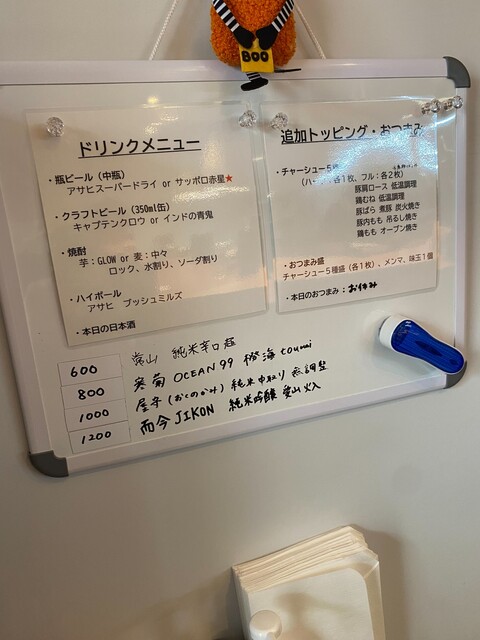 BOO
ドリンクメニュー
・瓶ビール（中瓶）
アサヒスーパードライ or サッポロ赤星★
・クラフトビール（350ml缶）
キャプテンクロウ or インドの青鬼
・焼酎
芋：GLOW or 麦：中々
ロック、水割り、ソーダ割り
・ハイボール
アサヒ ブッシュミルズ
・本日の日本酒
追加トッピング・おつまみ
・チャーシュー5種
各1枚、フル：各2枚）
豚肩ロース 低温調理
鶏むね 低温調理
豚ばら 煮豚 炭火焼き
豚内もも 吊るし焼き
鶏もも オーブン焼き
・おつまみ盛
チャーシュー5種盛（各1枚）、メンマ、味玉1個
・本日のおつまみ：お休み
600 常山 純米辛口超
800 寒菊 OCEAN 99 橙海 toumi
1000 屋守（おくのかみ）純米中取り 無調整
1200 而今 JIKON 純米吟醸 愛山火入